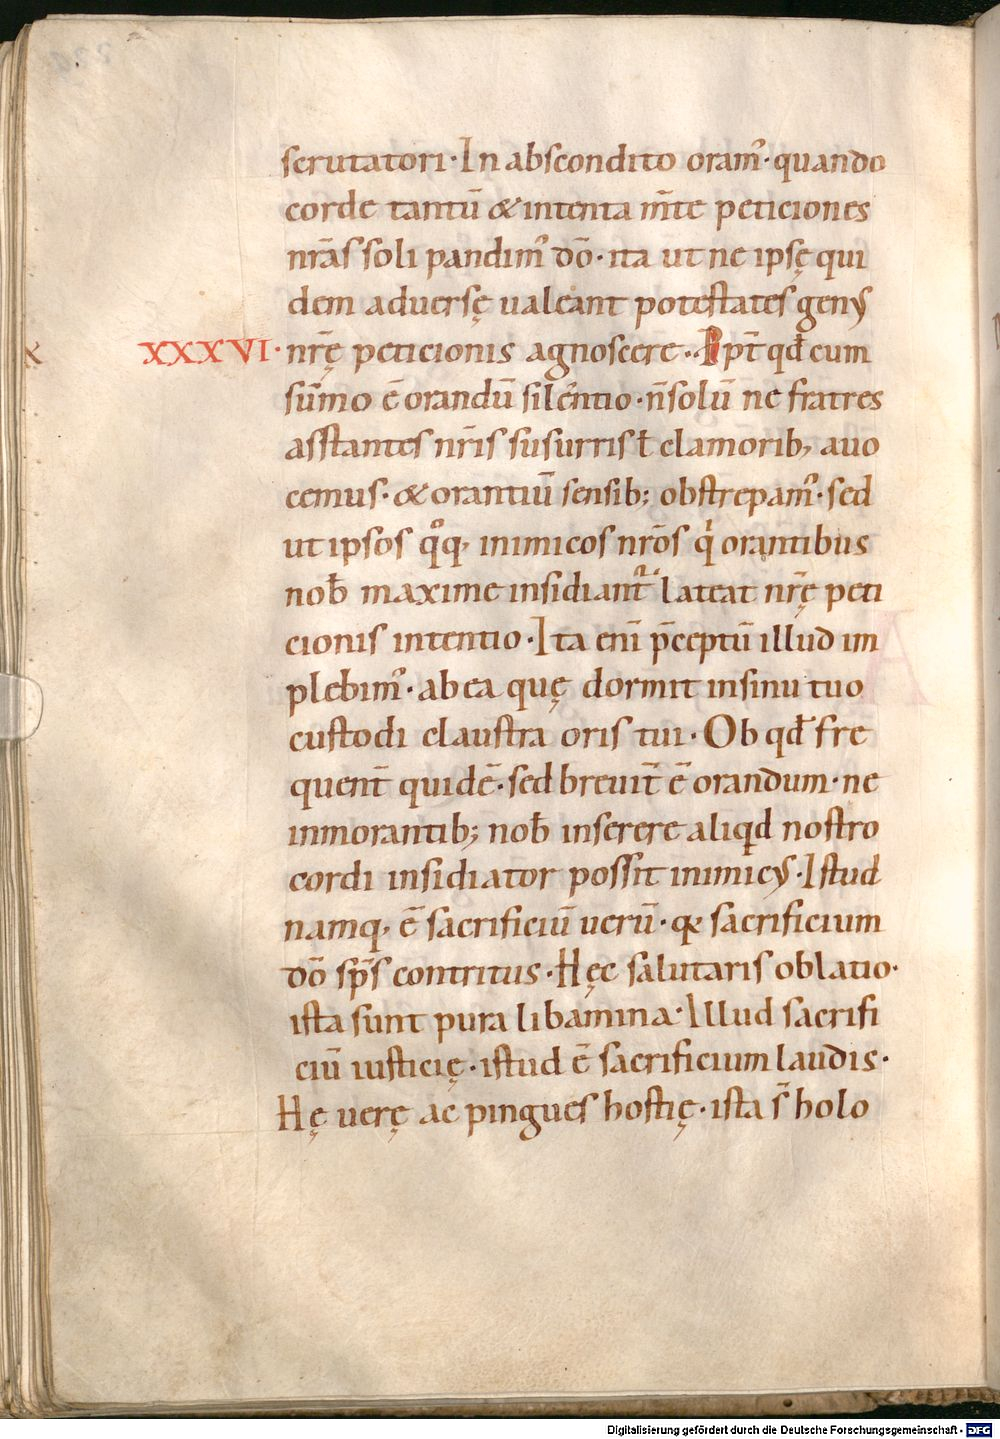 scrutatori·In abscondito oram᷒·quando
corde tantū &intenta m̄te peticiones
nr̄as soli pandim᷒ dō·ita ut ne ipsę qui
dem aduersę ualeant potestates geny᷒
XXXVI·nr̄ę peticionis agnoscere·Ppt̄ qđ cum
sūmo ē orandū silentio·n̄ solū ne fratres
asstantes nr̄is susurris ł clamorib; auo
cemus·&orantiū sensib; obstrepam᷒·sed
ut ipsos qͦq, inimicos nr̄os qⁱ orantibus
nob̄ maxime insidiant̄ lateat nr̄ę peti
cionis intentio·Ita eni̅ p̄ceptū illud im
plebim᷒·ab ea quę dormit in sinu tuo
custodi claustra oris tui·Ob qđ fre
quent̄ quidē·sed breuit̄ ē orandum·ne
inmorantib; nob̄ inserere aliqd nostro
cordi insidiator possit inimicy᷒·Istud
namq, ē sacrificiū uerū·qa sacrificium
dō sp̄s contritus·Hęc salutaris oblatio·
ista sunt pura libamina·Illud sacrifi
ciū iusticię·istud ē sacrificium laudis·
Hę uerę ac pingues hostię·ista s̄ holo
Digitalisierung gefördert durch die Deutsche Forschungsgemeinschaft - DFG